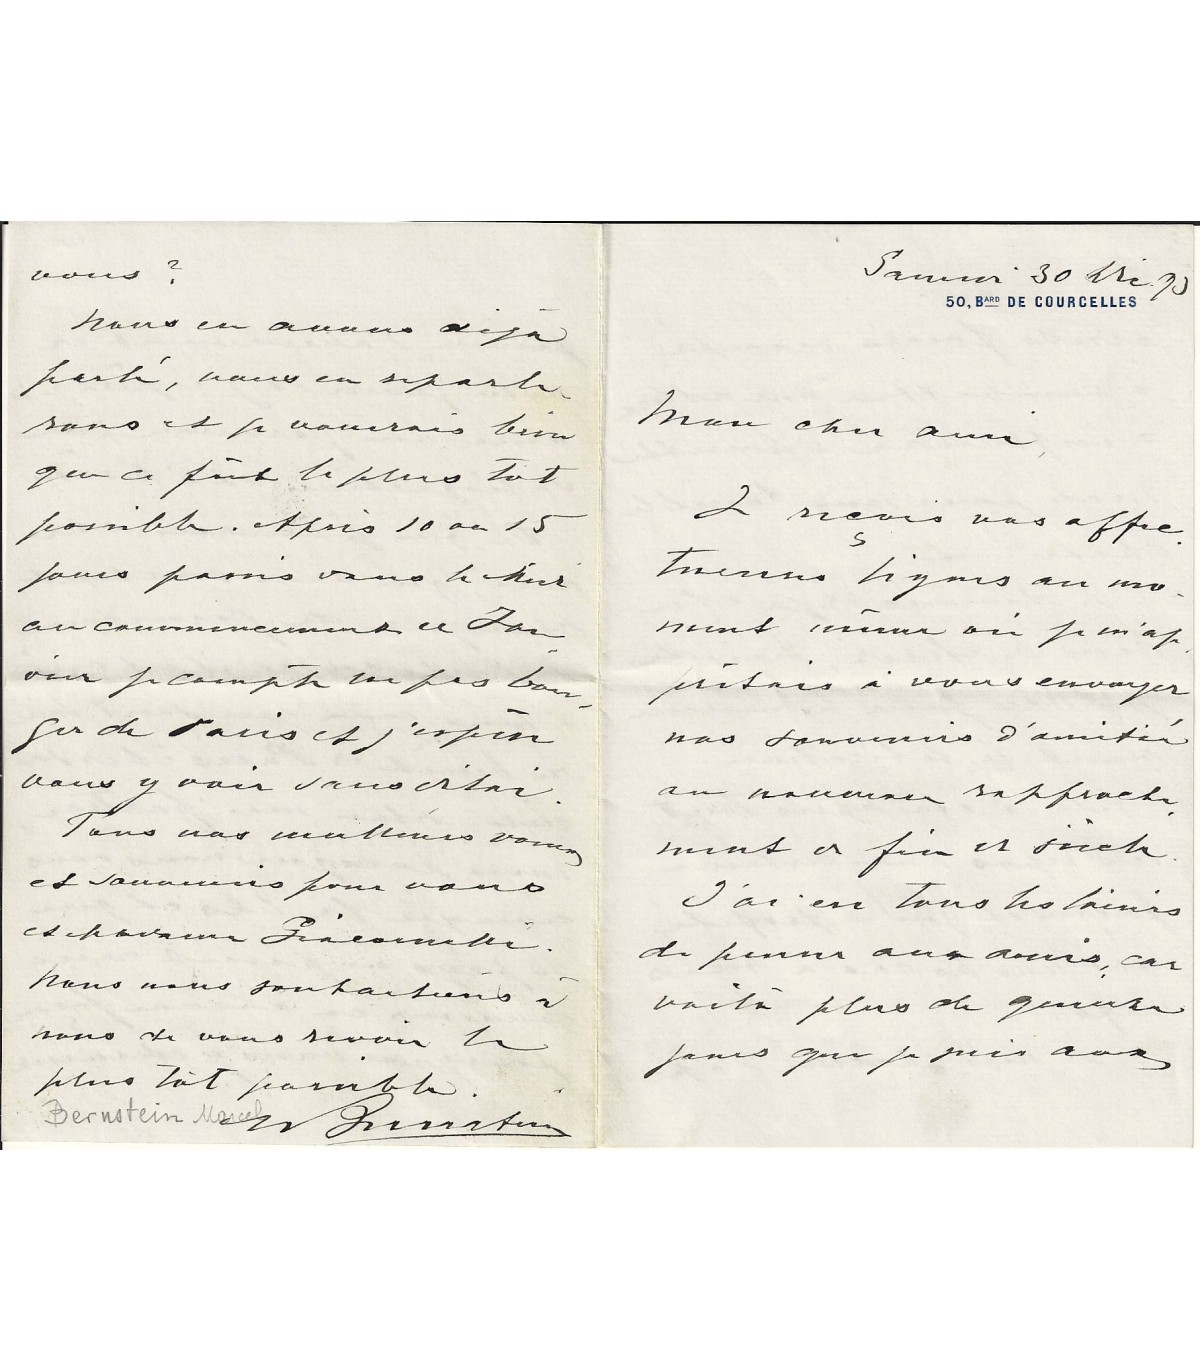 Samedi 30 Déc. 93
50, BARD DE COURCELLES
Mon cher ami,
Je reçois vos affec-
tueuses lignes au mo-
ment même où je m'ap-
prêtais à vous envoyer
nos souvenirs d'amitié
au nouveau rapproche-
ment de fin de siècle.
J'ai eu tous les loisirs
de penser aux amis, car
voilà plus de quinze
jours que je suis aux
vous ?
Nous en avons déjà
parlé, nous en reparle-
rons et je voudrais bien
que ce fût le plus tôt
possible. Après 10 ou 15
jours passés dans le Midi
au commencement de Jan-
vier je compte ne pas bou-
ger de Paris et j'espère
vous y voir sans délai.
Tous nos meilleurs vœux
et souvenirs pour vous
et Madame Giacomelli.
Nous nous souhaitons à
nous de vous revoir le
plus tôt possible.
M Bernstein
Bernstein Marcel